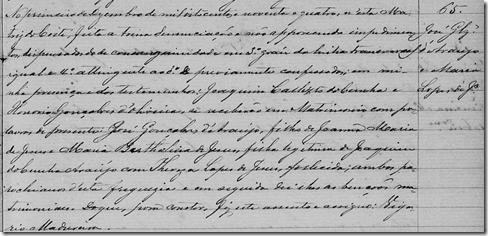 No primeiro de Dezembro de mil oitocentos e noventa e quatro, n'esta Ma-
triz do Coité, feita a trina denunciação e não apparecendo impedimen-
tos, dispensados de consanguinidade no 3º grau da linha transversal
igual e 4º attingente ao 3º previamente confessados, em mi-
nha presença e das testemunhas: Joaquim Calixto da Cunha e
Honorio Gonçalves d'Oliveira, se receberão em Matrimonio com pa-
lavras de presente: José Gonçalves d'Araujo, filho de Joanna Maria
de Jesus e Maria Bertholina de Jesus, filha legitima de Joaquim
da Cunha Araújo com Thereza Lopes de Jesus, fallecida; ambos pa-
rochianos d'esta freguezia e em seguida dei-lhes as bençãos ma-
trimoniaes. Do que, para constar, fiz este assento e assigno: Viga-
rio Madureira.
65.
José Glz
d'Araujo
e Maria
Lopes de Js